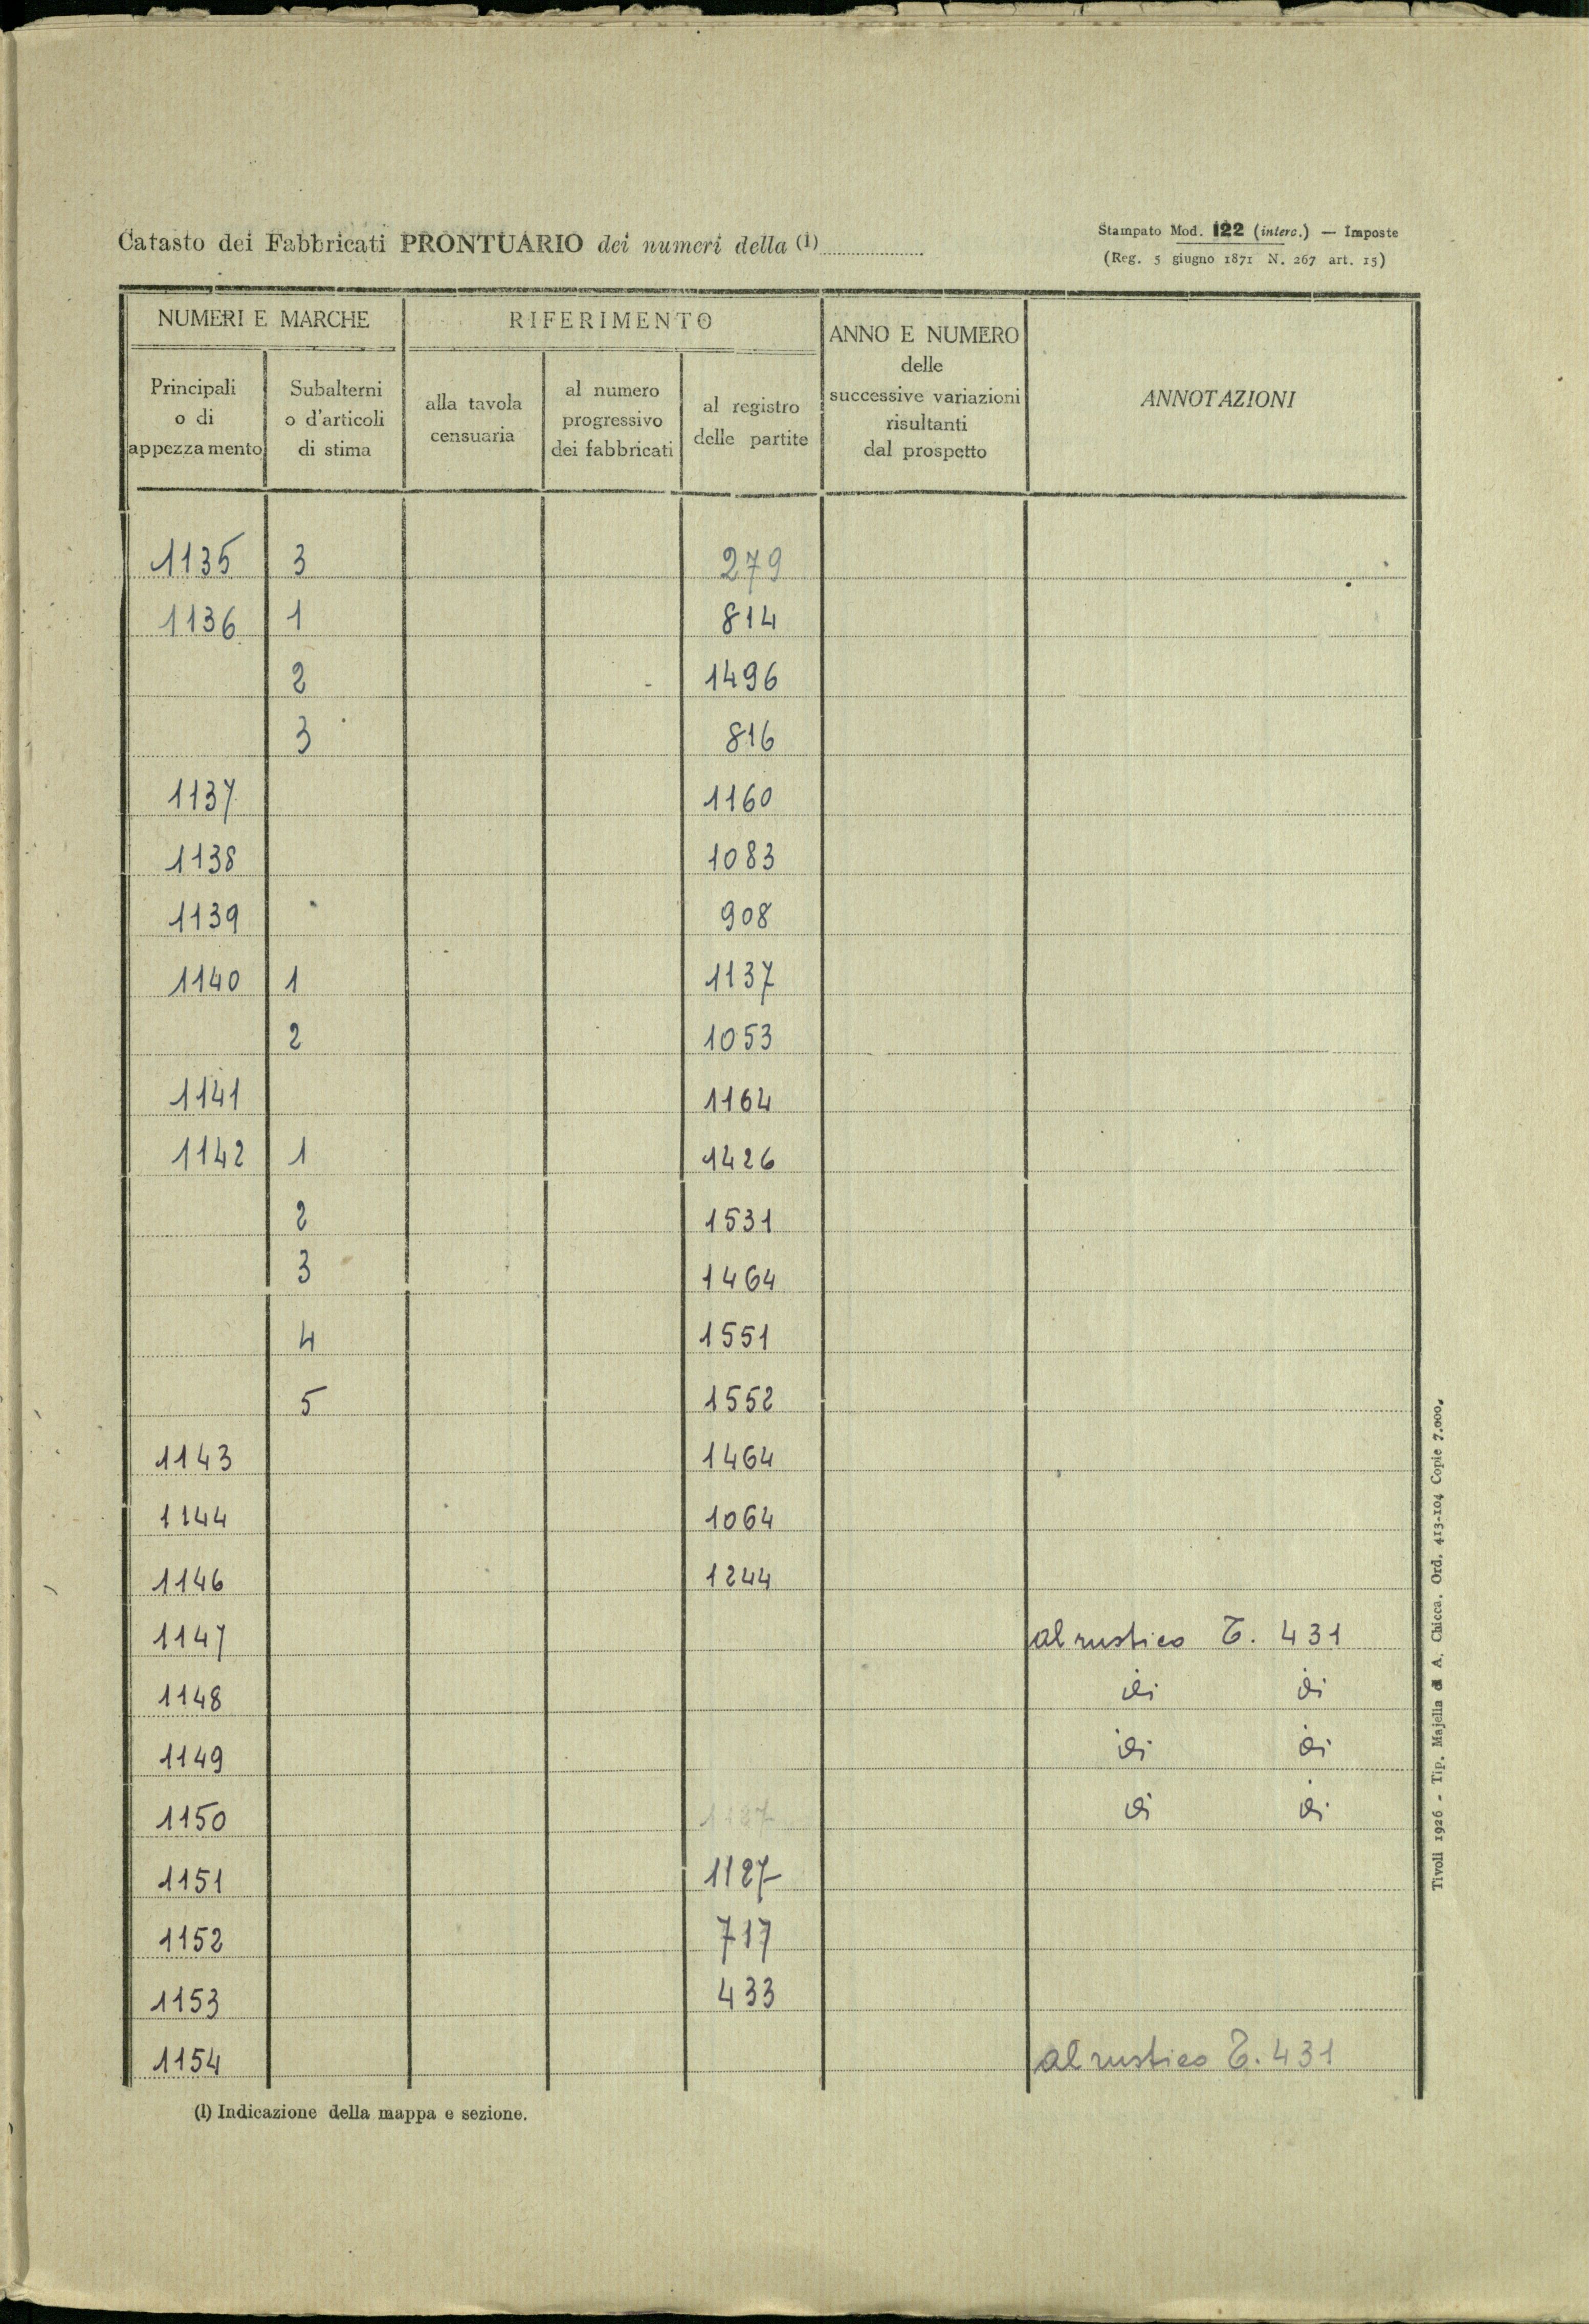 Catasto dei Fabbricati PRONTUARIO dei numeri della (1)
Stampato Mod. 122 (interc.) — Imposte
(Reg. 5 giugno 1871 N. 267 art. 15)
NUMERI E MARCHE
RIFERIMENTO
ANNO E NUMERO
delle
successive variazioni
risultanti
dal prospetto
ANNOTAZIONI
Principali
o di
appezzamento
Subalterni
o d'articoli
di stima
alla tavola
censuaria
al numero
progressivo
dei fabbricati
al registro
delle partite
1135 3 279
1136 1 814
2 1496
3 816
1137 1160
1138 1083
1139 908
1140 1 1137
2 1053
1141 1164
1142 1 1426
2 1531
3 1464
4 1551
5 1552
1143 1464
1144 1064
1146 1244
1147 al rustico T. 431
1148 di di
1149 di di
1150 di di
1151 1127
1152 717
1153 433
1154 al rustico T. 431
(1) Indicazione della mappa e sezione.
Tivoli 1926 - Tip. Majella di A. Chicca. Ord. 413-104 Copie 7.000.